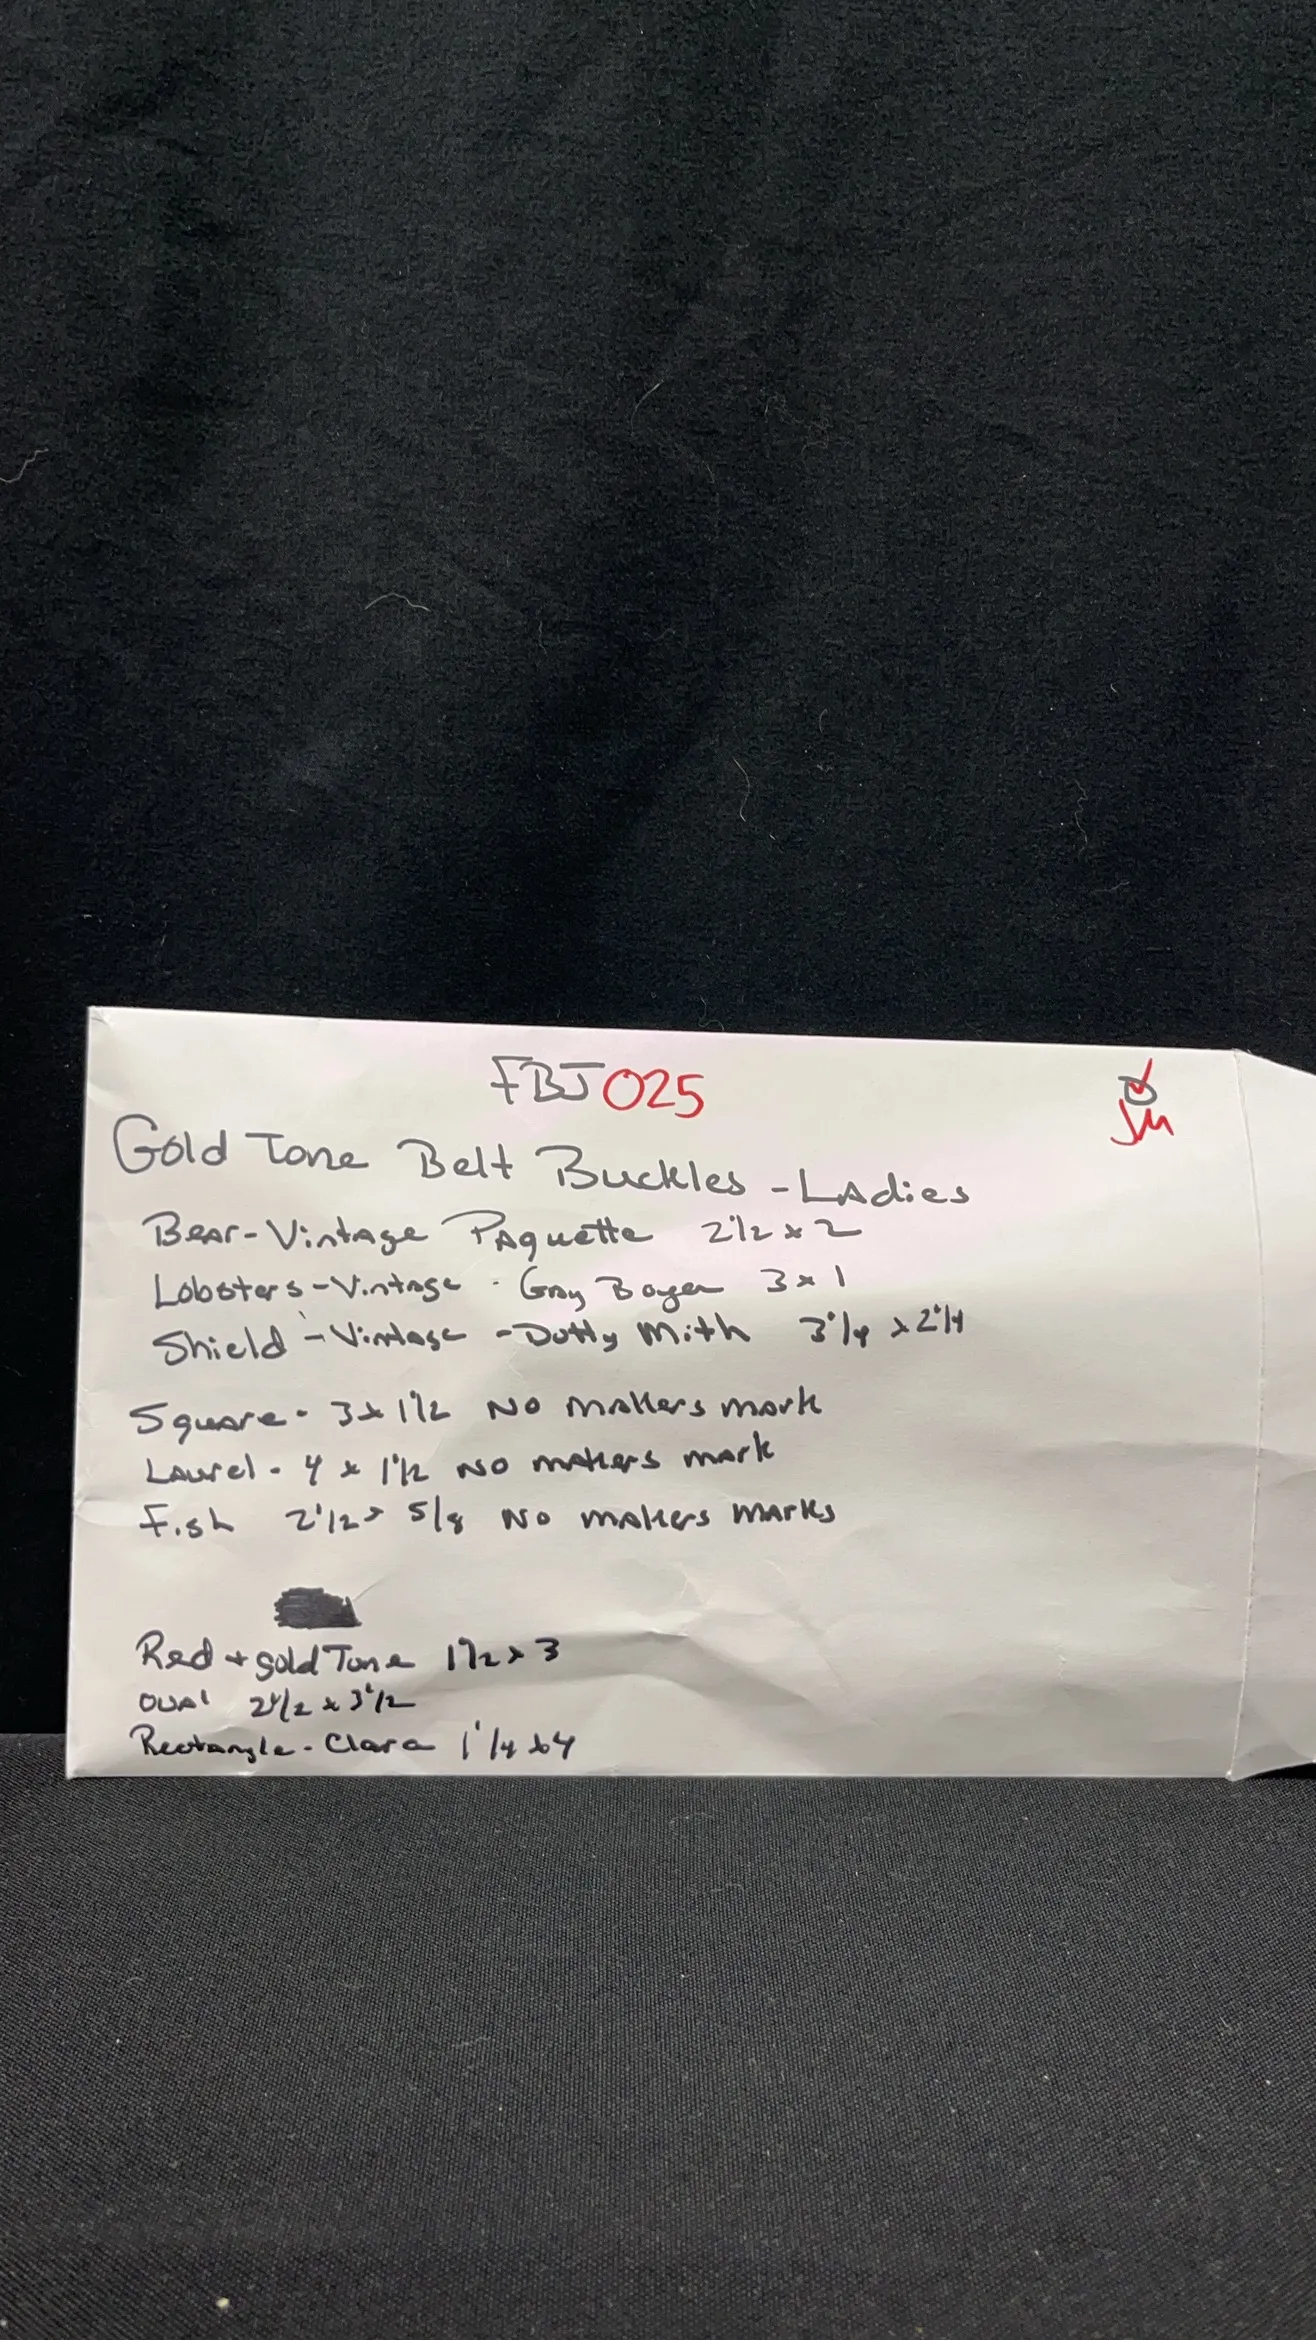 FBJ025
Gold Tone Belt Buckles - Ladies
Bear - Vintage Paquette 2 1/2 x 2
Lobsters - Vintage - Gray Boyer 3 x 1
Shield - Vintage - Dotty Mith 3 1/4 x 2 1/4
Square - 3 x 1 1/2 No makers mark
Laurel - 4 x 1 1/2 No makers mark
Fish 2 1/2 x 5/8 No makers marks
Red + gold Tone 1 1/2 x 3
Oval 2 1/2 x 3 1/2
Rectangle - Clara 1 1/4 by